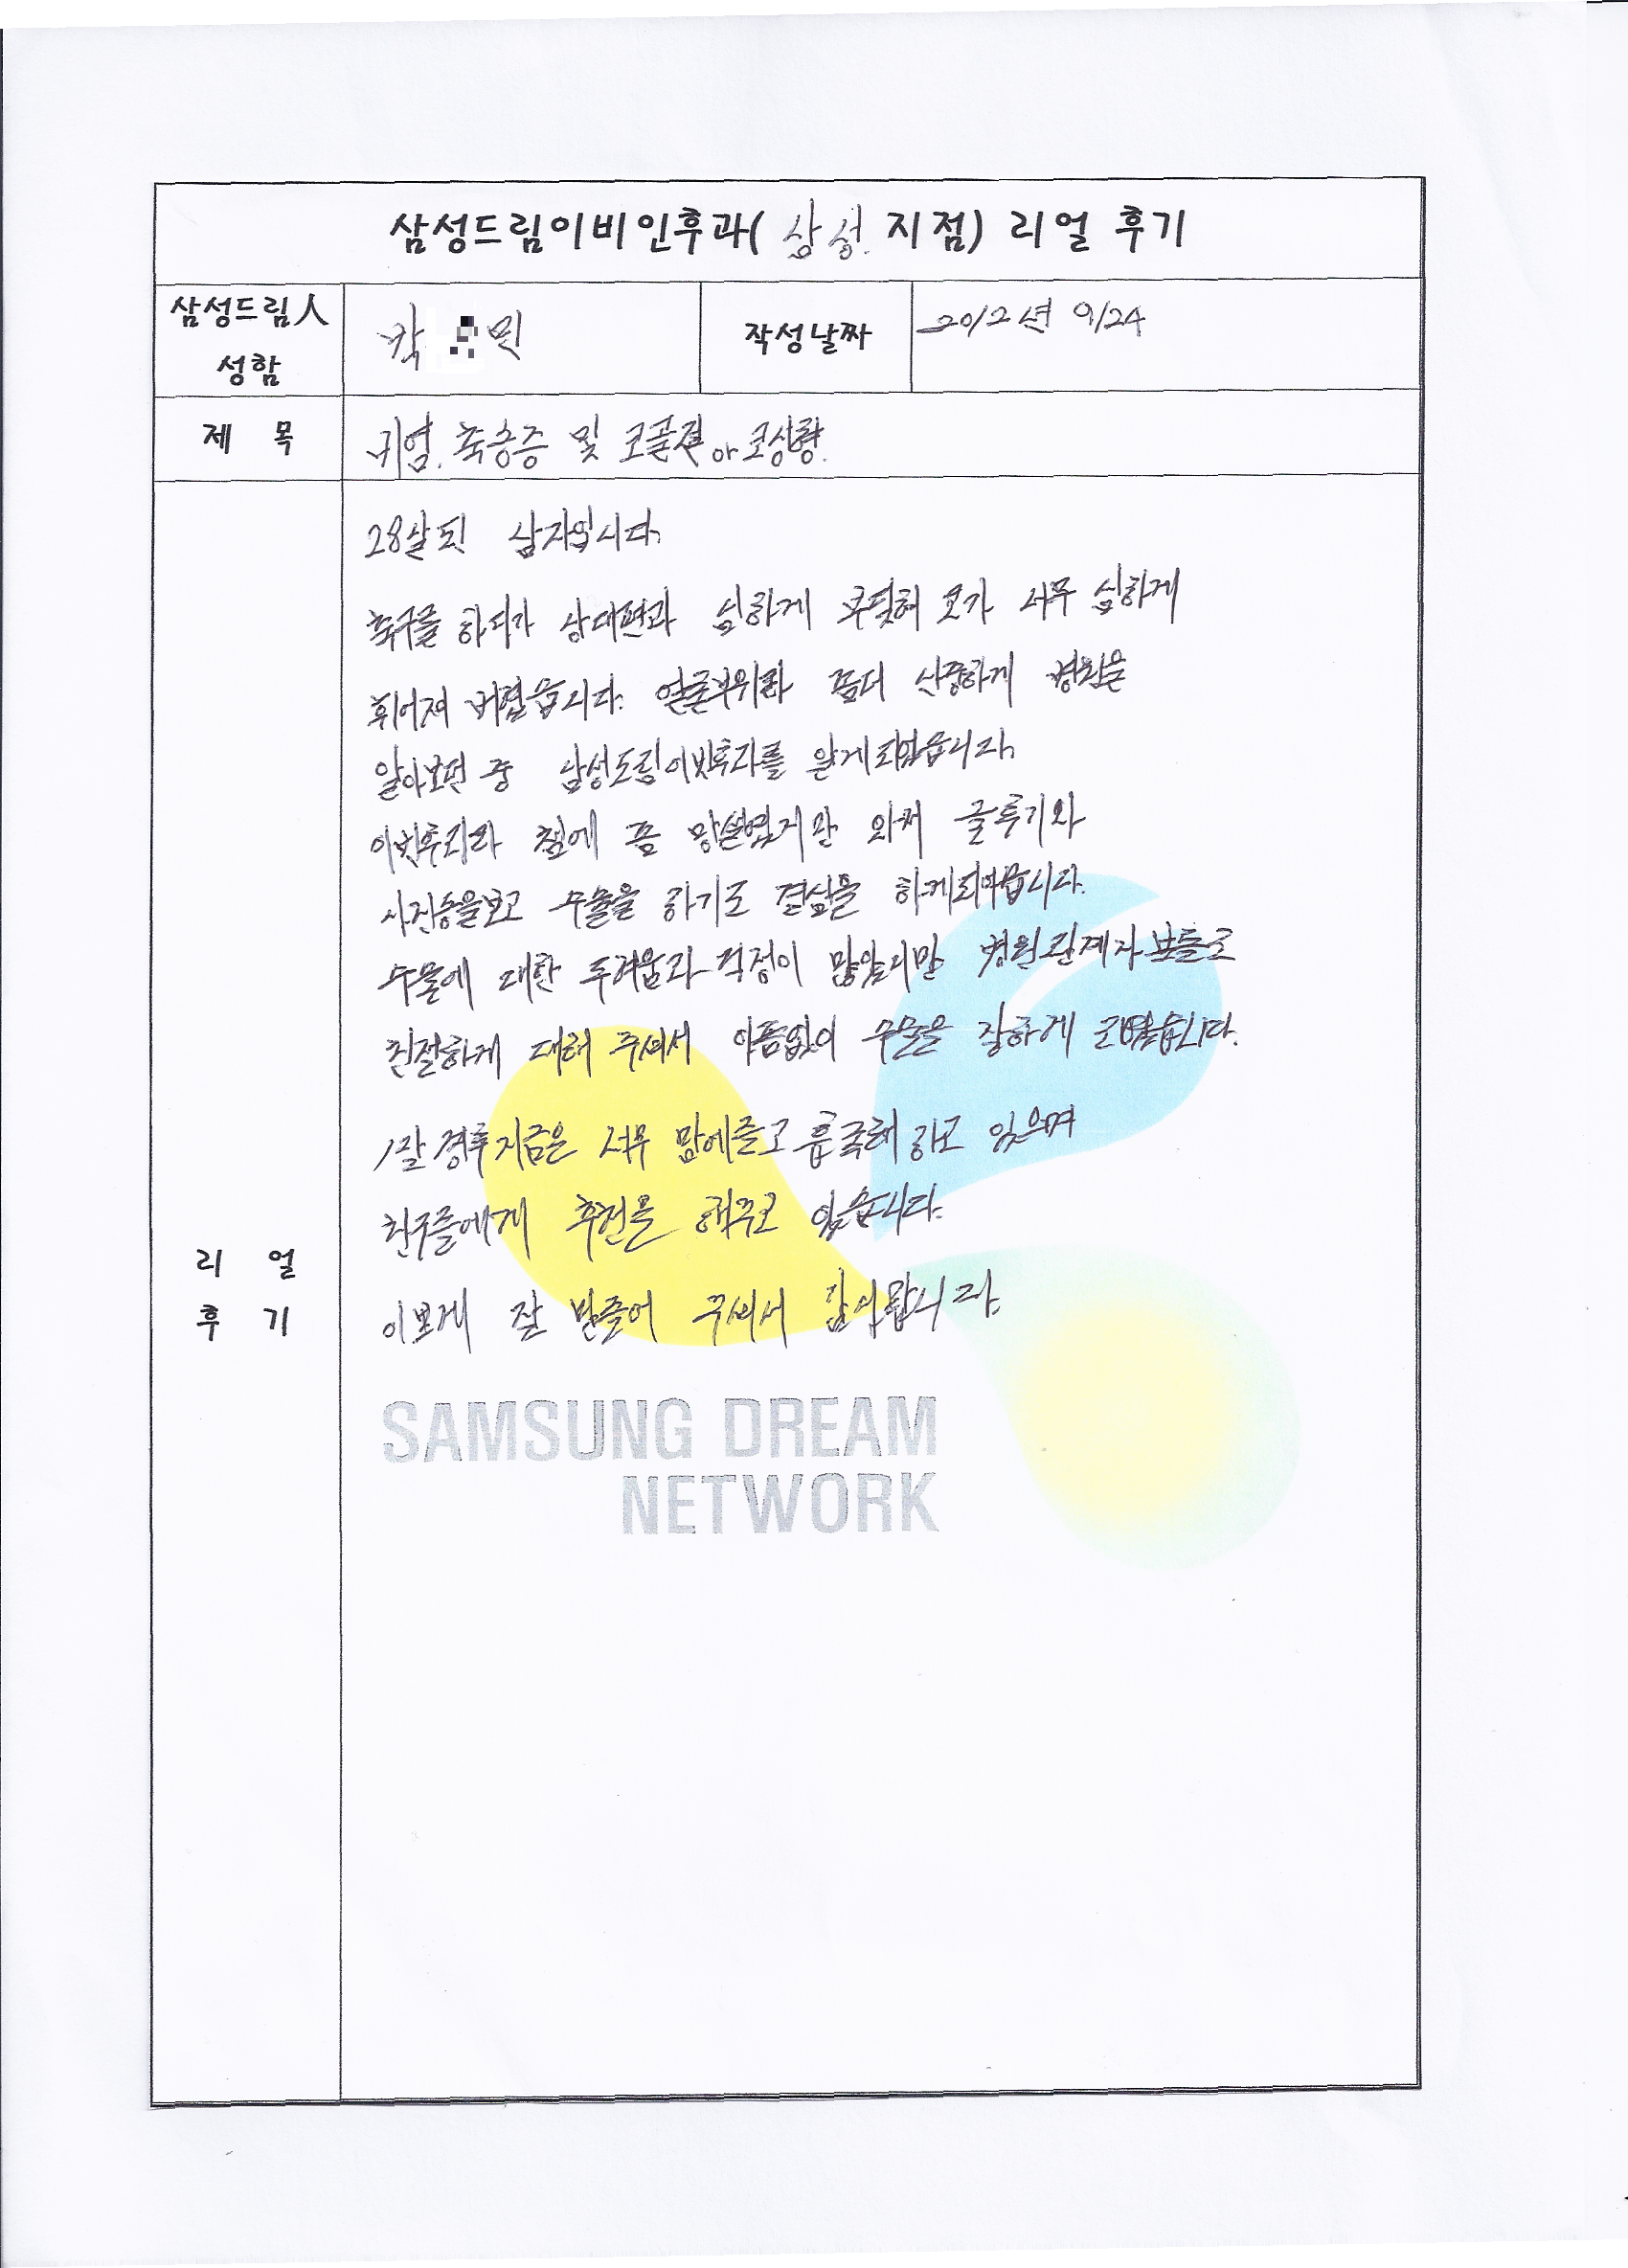 삼성드림이비인후과( 삼성 지점) 리얼 후기
삼성드림人
성함
작성날짜
2012년 9/24
제 목
비염, 축농증 및 코골절 or 코성형.
28살 된 남자입니다.
축구를 하다가 상대편과 심하게 부딪혀 코가 너무 심하게
휘어져 버렸습니다. 얼굴부위라 좀더 신중하게 병원을
알아보던 중 삼성드림이빈후과를 알게되었습니다.
이빈후과라 첨에 좀 망설였지만 와서 글후기와
사진등을보고 수술을 하기로 결심을 하게되어습니다.
수술에 대한 두려움과 걱정이 많았지만 병원관계자분들로
친절하게 대해 주셔서 아픔없이 수술을 잘하게 되었습니다.
1달 경후 지금은 너무 맘에들고 흡족해 하고 있으며
친구들에게 추천을 해주고 있습니다.
이쁘게 잘 만들어 주셔서 감사합니다.
리 얼
후 기
SAMSUNG DREAM
NETWORK